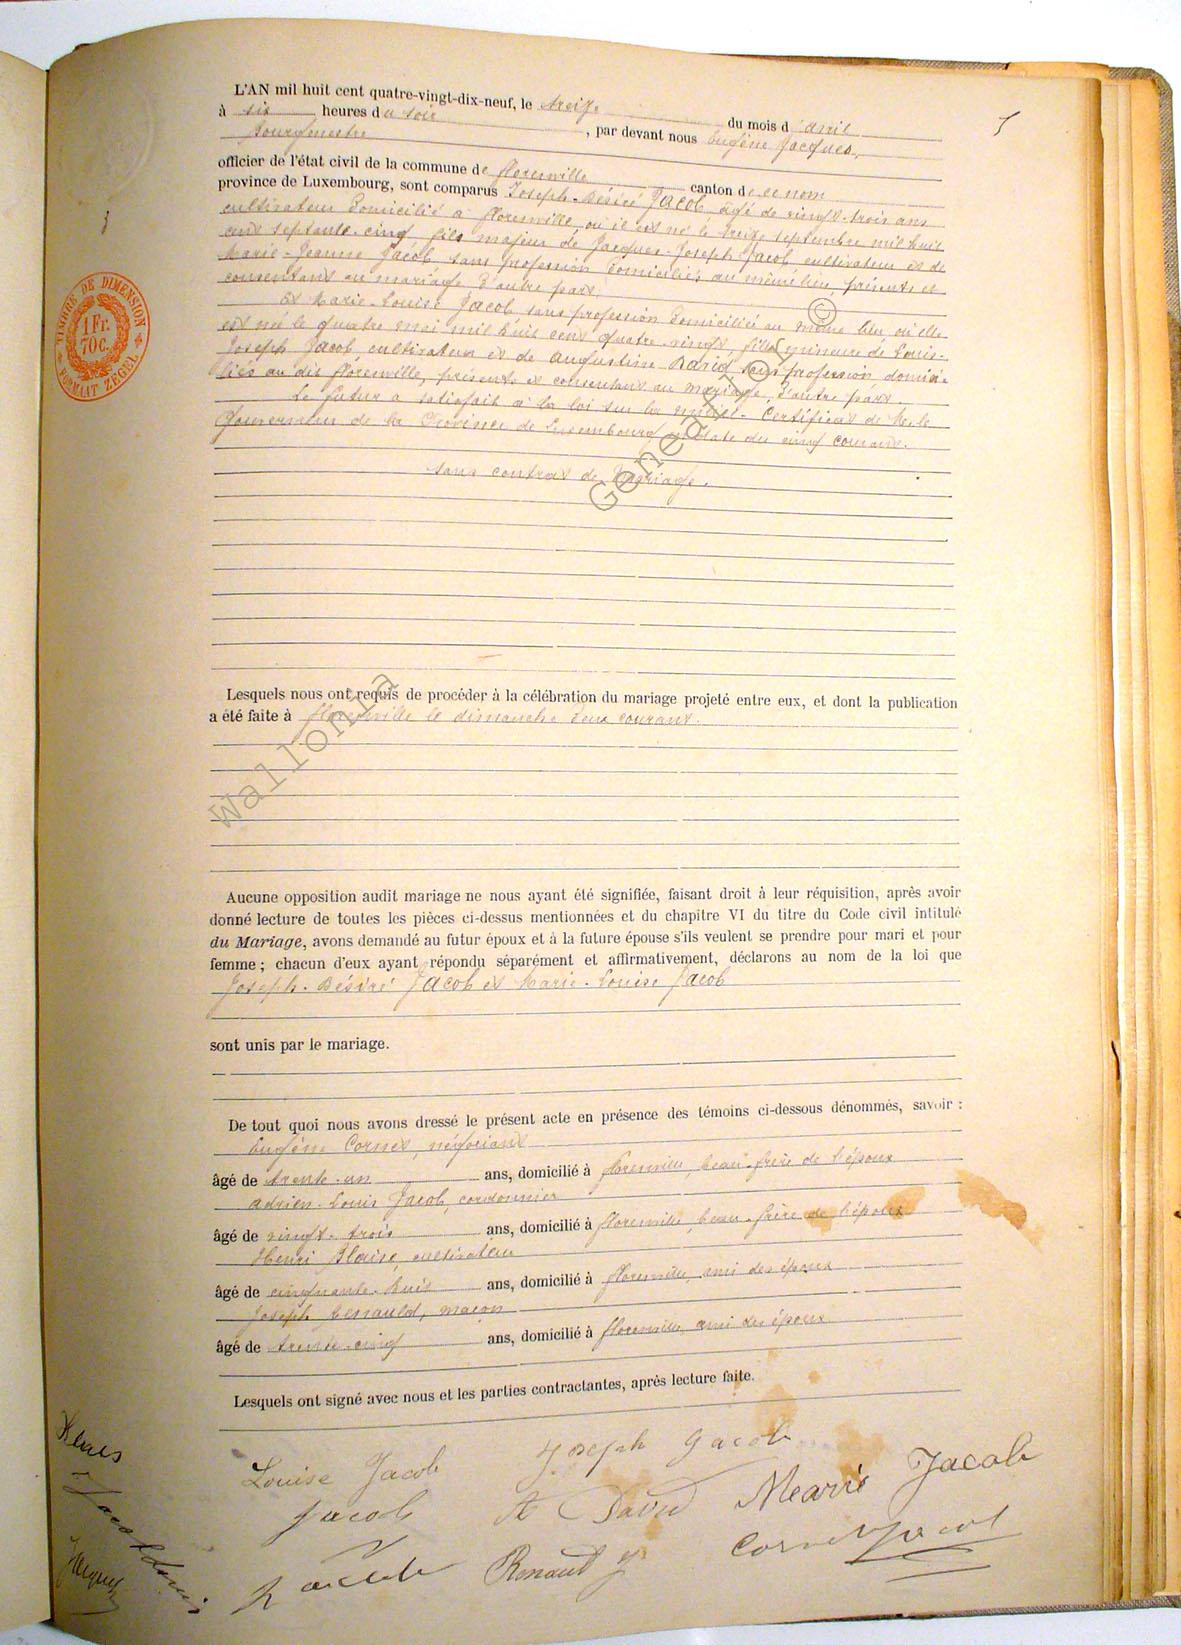 L'AN mil huit cent quatre-vingt-dix-neuf, le treize du mois d'avril
à six heures du soir, par devant nous Eugène Jacques,
bourgmestre
officier de l'état civil de la commune de florenville canton de ce nom
province de Luxembourg, sont comparus Joseph-Désiré Jacob âgé de vingt-trois ans
cultivateur domicilié à florenville où il est né le treize septembre mil huit
cent septante-cinq fils majeur de Jacques-Joseph Jacob cultivateur et de
Marie-Jeanne Jacob sans profession domiciliés au même lieu, présents et
consentant au mariage d'autre part.
Et Marie-Louise Jacob sans profession domiciliée au même lieu où elle
est né le quatre mai mil huit cent quatre-vingt, fille mineure de Louis-
Joseph Jacob cultivateur et de Augustine David sans profession domici-
liés au dit florenville, présents et consentant au mariage, d'autre part.
Le futur a satisfait à la loi sur la milice. Certificat de Mr le
Gouverneur de la Province de Luxembourg en date du cinq courant.
Sans contrat de Mariage.
Lesquels nous ont requis de procéder à la célébration du mariage projeté entre eux, et dont la publication
a été faite à florenville le dimanche deux courant.
Aucune opposition audit mariage ne nous ayant été signifiée, faisant droit à leur réquisition, après avoir
donné lecture de toutes les pièces ci-dessus mentionnées et du chapitre VI du titre du Code civil intitulé
du Mariage, avons demandé au futur époux et à la future épouse s'ils veulent se prendre pour mari et pour
femme ; chacun d'eux ayant répondu séparément et affirmativement, déclarons au nom de la loi que
Joseph-Désiré Jacob et Marie-Louise Jacob
sont unis par le mariage.
De tout quoi nous avons dressé le présent acte en présence des témoins ci-dessous dénommés, savoir :
Eugène Cornet, négociant
âgé de trente-un ans, domicilié à florenville, beau-frère de l'époux
Adrien-Louis Jacob, cordonnier
âgé de vingt-trois ans, domicilié à florenville, beau-frère de l'époux
Henri Blaise, cultivateur
âgé de cinquante-huit ans, domicilié à florenville, ami des époux
Joseph Renauld, maçon
âgé de trente-cinq ans, domicilié à florenville, ami des époux
Lesquels ont signé avec nous et les parties contractantes, après lecture faite.
Louise Jacob Joseph Jacob
Jacob A David Marie Jacob
Renauld J Cornet Jacob
Jacques
TIMBRE DE DIMENSION
1 Fr.
70c.
FORMAAT ZEGEL
Wallonia Genea ©